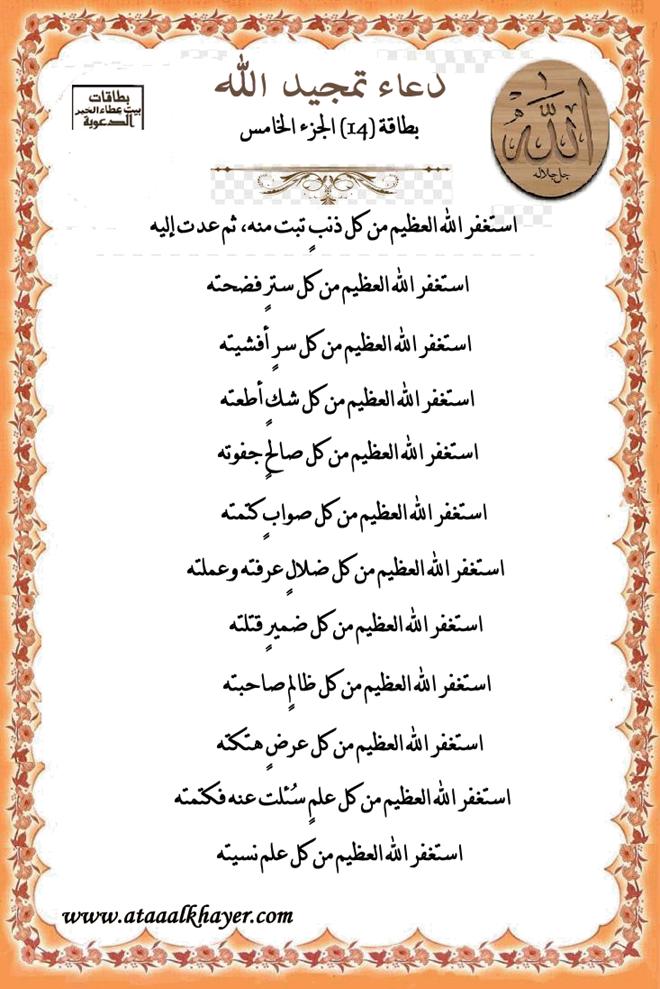 دعاء تمجيد الله
بطاقة (14) الجزء الخامس
بطاقات
بيت عطاء الخير
الدعوية
الله
جل جلاله
استغفر الله العظيم من كل ذنبٍ تبت منه، ثم عدت إليه
استغفر الله العظيم من كل سترٍ فضحته
استغفر الله العظيم من كل سرٍ أفشيته
استغفر الله العظيم من كل شكٍ أطعته
استغفر الله العظيم من كل صالحٍ جفوته
استغفر الله العظيم من كل صوابٍ كتمته
استغفر الله العظيم من كل ضلالٍ عرفته وعملته
استغفر الله العظيم من كل ضميرٍ قتلته
استغفر الله العظيم من كل ظالمٍ صاحبته
استغفر الله العظيم من كل عرضٍ هتكته
استغفر الله العظيم من كل علمٍ سُئلت عنه فكتمته
استغفر الله العظيم من كل علم نسيته
www.ataaalkhayer.com